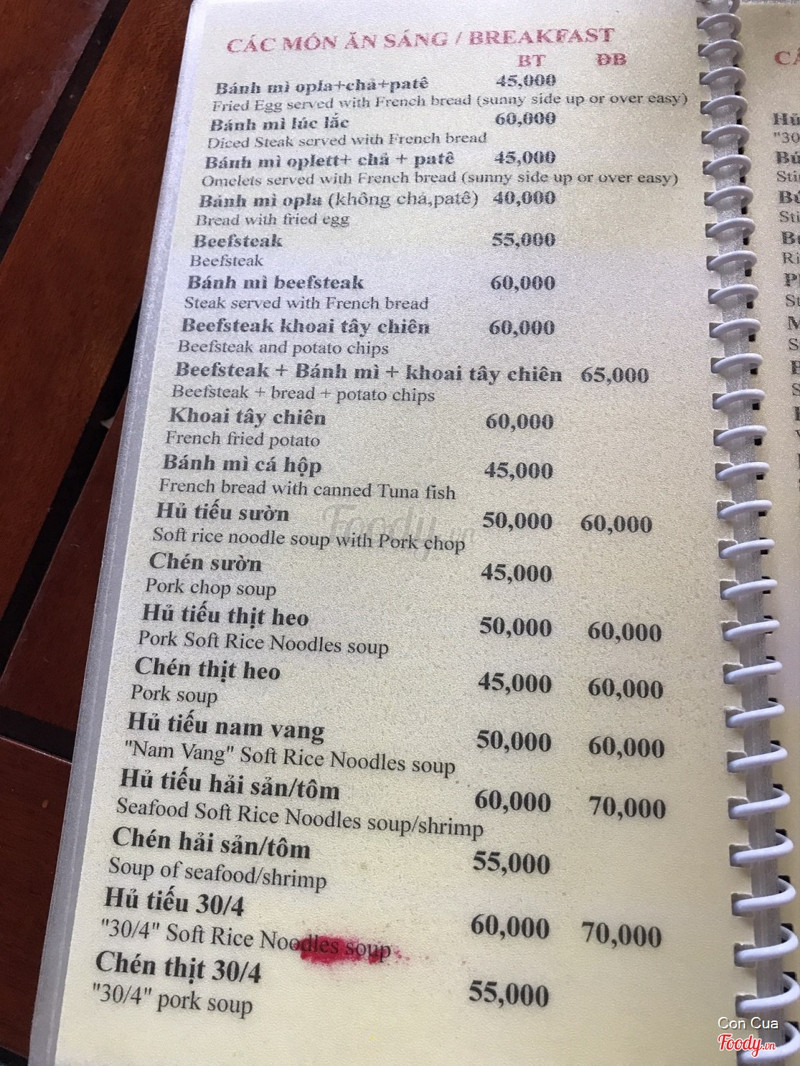 CÁC MÓN ĂN SÁNG / BREAKFAST
BT ĐB
Bánh mì opla+chả+patê 45,000
Fried Egg served with French bread (sunny side up or over easy)
Bánh mì lúc lắc 60,000
Diced Steak served with French bread
Bánh mì oplett+ chả + patê 45,000
Omelets served with French bread (sunny side up or over easy)
Bánh mì opla (không chả,patê) 40,000
Bread with fried egg
Beefsteak 55,000
Beefsteak
Bánh mì beefsteak 60,000
Steak served with French bread
Beefsteak khoai tây chiên 60,000
Beefsteak and potato chips
Beefsteak + Bánh mì + khoai tây chiên 65,000
Beefsteak + bread + potato chips
Khoai tây chiên 60,000
French fried potato
Bánh mì cá hộp 45,000
French bread with canned Tuna fish
Hủ tiếu sườn 50,000 60,000
Soft rice noodle soup with Pork chop
Chén sườn 45,000
Pork chop soup
Hủ tiếu thịt heo 50,000 60,000
Pork Soft Rice Noodles soup
Chén thịt heo 45,000 60,000
Pork soup
Hủ tiếu nam vang 50,000 60,000
"Nam Vang" Soft Rice Noodles soup
Hủ tiếu hải sản/tôm 60,000 70,000
Seafood Soft Rice Noodles soup/shrimp
Chén hải sản/tôm 55,000
Soup of seafood/shrimp
Hủ tiếu 30/4 60,000 70,000
"30/4" Soft Rice Noodles soup
Chén thịt 30/4 55,000
"30/4" pork soup
Foody.vn
Con Cua
Foody.vn